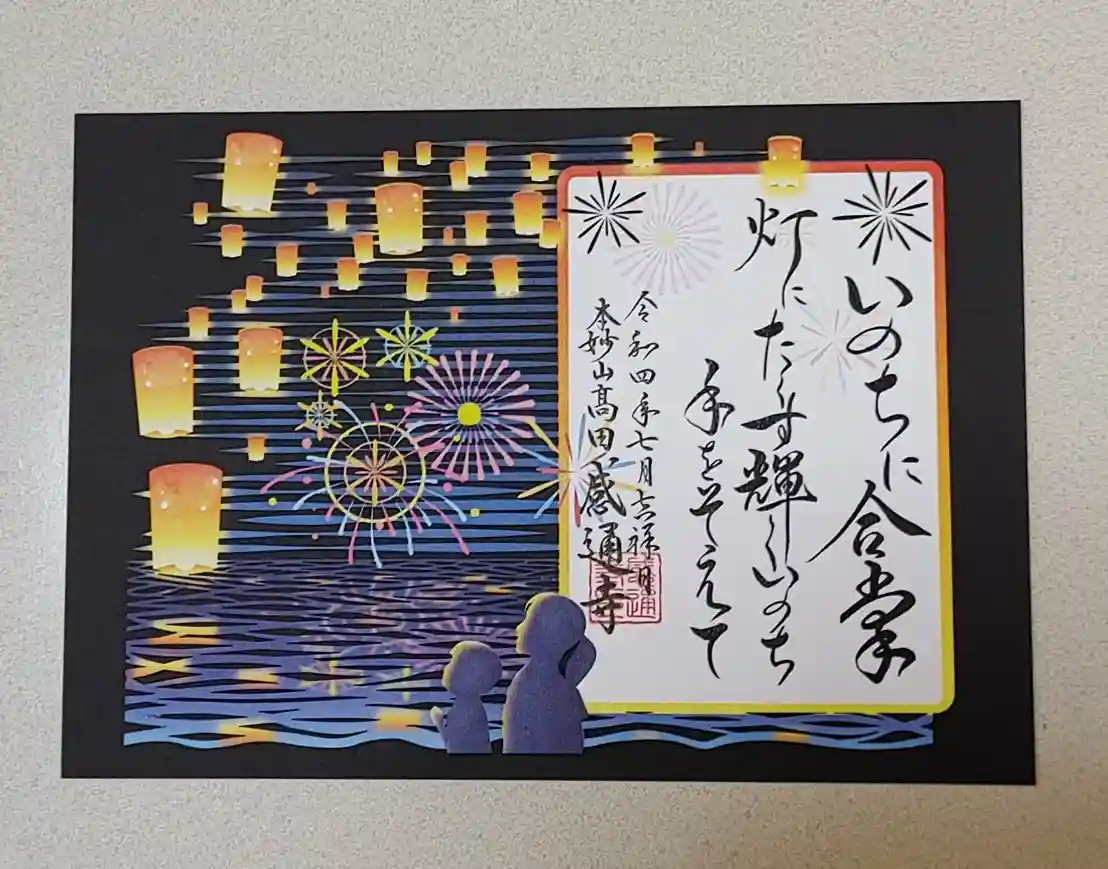 いのちに合掌
灯にたくす輝くいのち
手をそえて
令和四年七月吉祥日
本妙山高田感通寺
感通